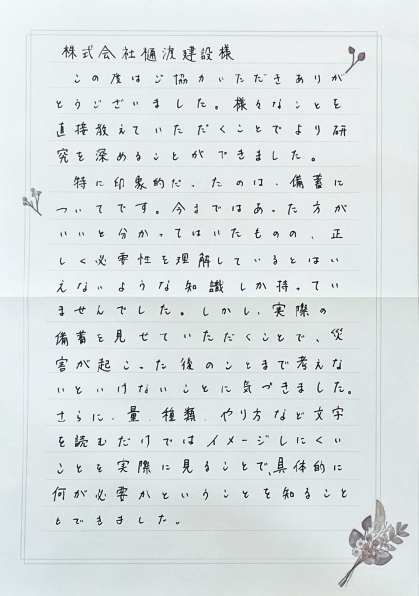 株式会社樋渡建設様
この度はご協力いただきありが
とうございました。様々なことを
直接教えていただくことでより研
究を深めることができました。
特に印象的だったのは、備蓄に
ついてです。今まではあった方が
いいと分かってはいたものの、正
しく必要性を理解しているとはい
えないような知識しか持ってい
ませんでした。しかし、実際の
備蓄を見せていただくことで、災
害が起こった後のことまで考えな
いといけないことに気づきました。
さらに、量、種類、やり方など文字
を読むだけではイメージしにくい
ことを実際に見ることで、具体的に
何が必要かということを知ること
もできました。